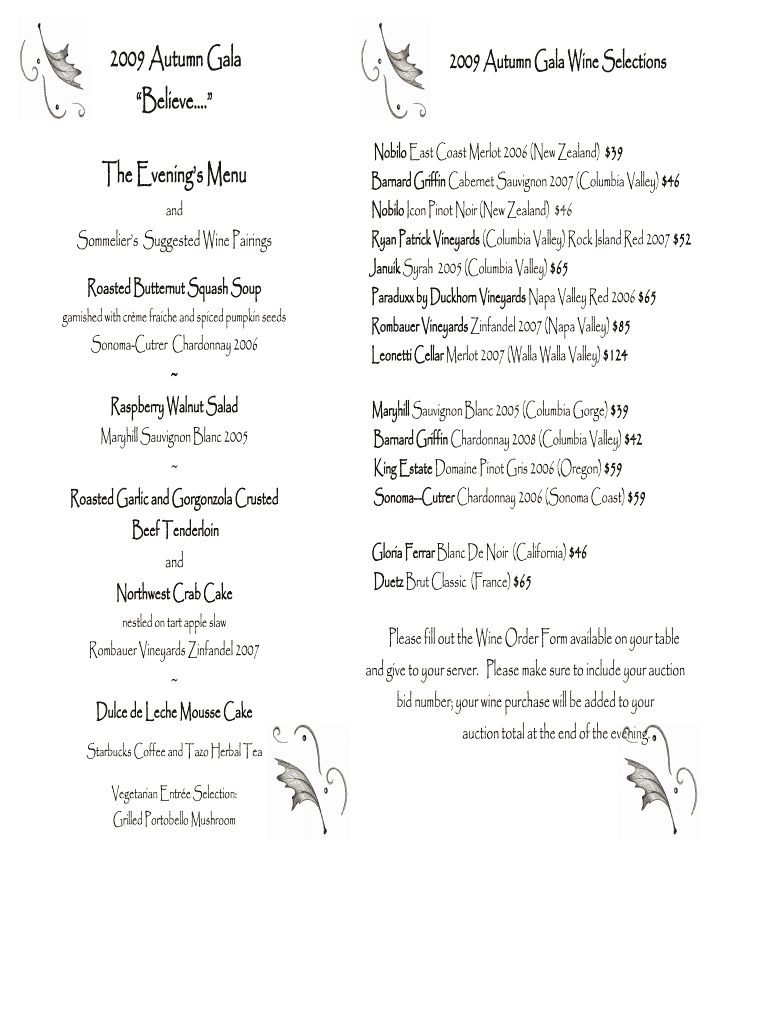 2009 Autumn Gala
“Believe....”
The Evening’s Menu
and
Sommelier’s Suggested Wine Pairings
Roasted Butternut Squash Soup
garnished with crème fraiche and spiced pumpkin seeds
Sonoma-Cutrer Chardonnay 2006
~
Raspberry Walnut Salad
Maryhill Sauvignon Blanc 2005
~
Roasted Garlic and Gorgonzola Crusted
Beef Tenderloin
and
Northwest Crab Cake
nestled on tart apple slaw
Rombauer Vineyards Zinfandel 2007
~
Dulce de Leche Mousse Cake
Starbucks Coffee and Tazo Herbal Tea
Vegetarian Entrée Selection:
Grilled Portobello Mushroom
2009 Autumn Gala Wine Selections
Nobilo East Coast Merlot 2006 (New Zealand) $39
Barnard Griffin Cabernet Sauvignon 2007 (Columbia Valley) $46
Nobilo Icon Pinot Noir (New Zealand) $46
Ryan Patrick Vineyards (Columbia Valley) Rock Island Red 2007 $52
Januik Syrah 2005 (Columbia Valley) $65
Paraduxx by Duckhorn Vineyards Napa Valley Red 2006 $65
Rombauer Vineyards Zinfandel 2007 (Napa Valley) $85
Leonetti Cellar Merlot 2007 (Walla Walla Valley) $124
Maryhill Sauvignon Blanc 2005 (Columbia Gorge) $39
Barnard Griffin Chardonnay 2008 (Columbia Valley) $42
King Estate Domaine Pinot Gris 2006 (Oregon) $59
Sonoma—Cutrer Chardonnay 2006 (Sonoma Coast) $59
Gloria Ferrar Blanc De Noir (California) $46
Duetz Brut Classic (France) $65
Please fill out the Wine Order Form available on your table
and give to your server. Please make sure to include your auction
bid number; your wine purchase will be added to your
auction total at the end of the evening.